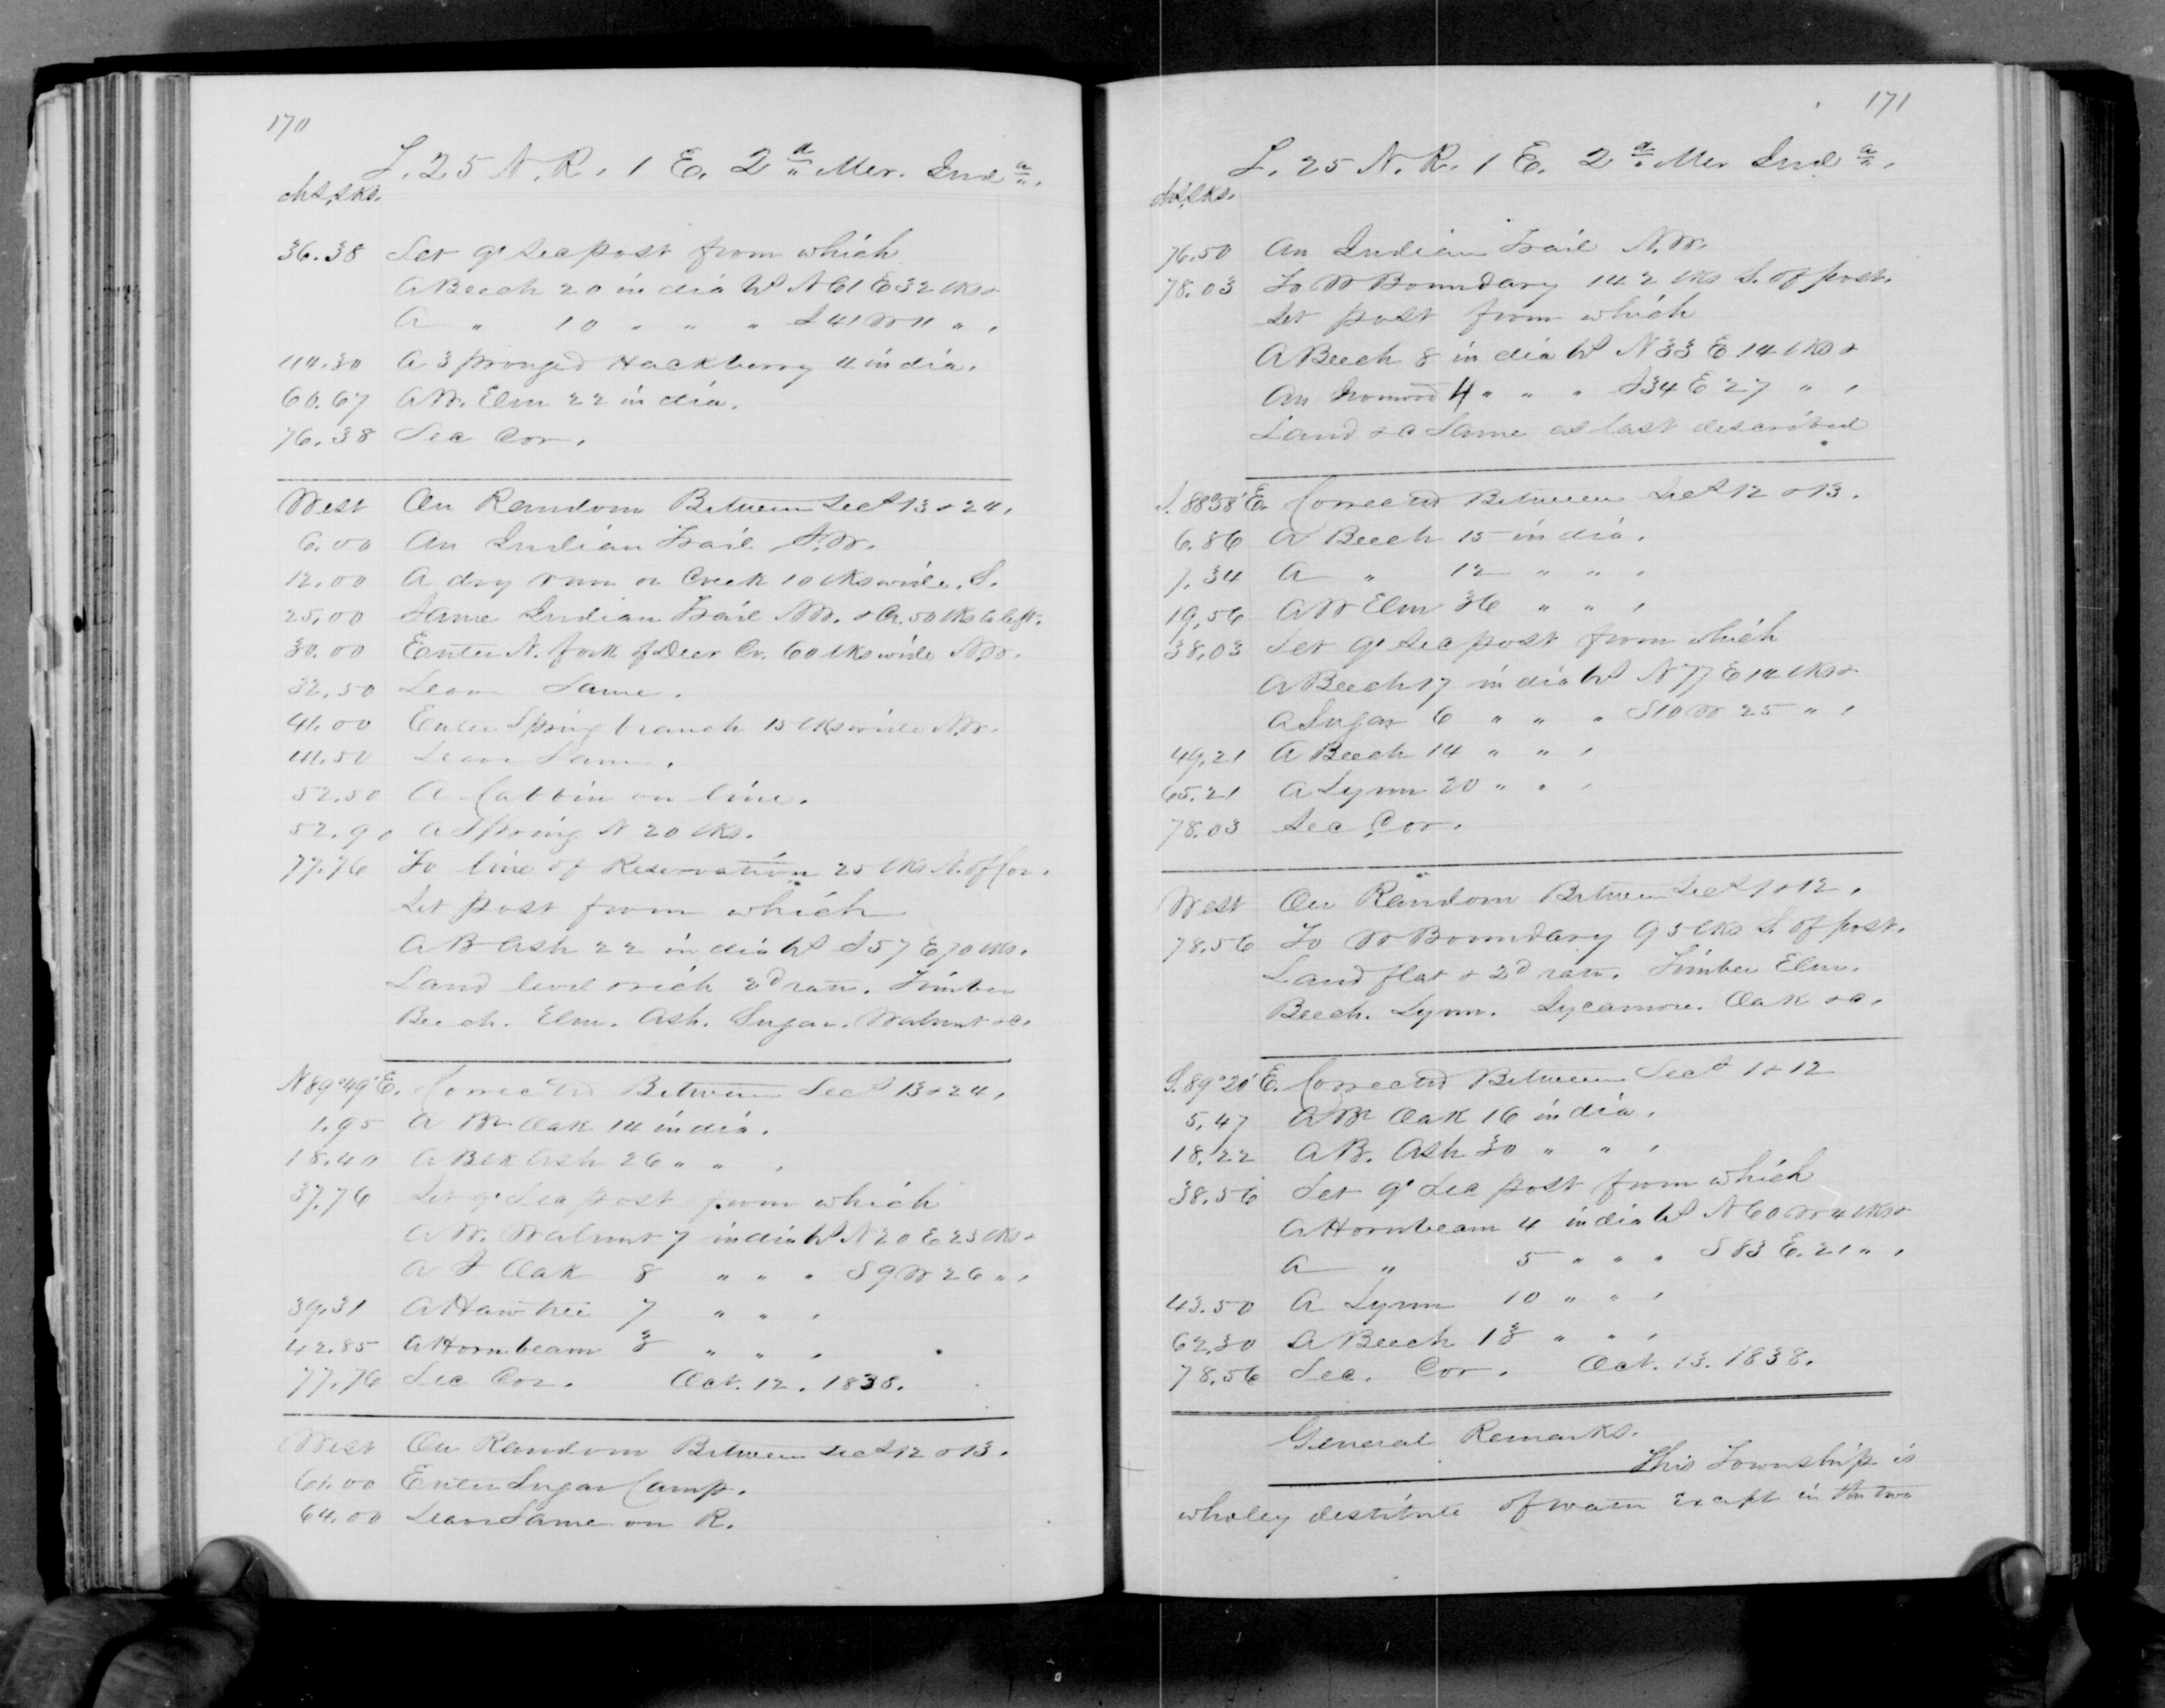 170
T. 25 N. R. 1 E. 2d Mer. Inda.
chs, lks.
36.38 Set qr Sec post from which
A Beech 20 in dia bs N 61 E 32 lks &
A " 10 " " " S 41 W 11 " ,
44.30 A 3 pronged Hackberry 4 in dia.
60.67 A W. Elm 22 in dia.
76.38 Sec Cor.
West On Random Between Secs 13 & 24.
6.00 An Indian Trail S.W.
12.00 A dry run or Creek 10 lks wide. S.
25.00 Same Indian Trail N.W. & Cr. 50 lks to left.
30.00 Enter N. fork of Deer Cr. 60 lks wide N.W.
32.50 Leave Same.
41.00 Enter Spring branch 15 lks wide N.W.
41.50 Leave Same.
52.50 A Cabbin on line.
52.90 A Spring N 20 lks.
77.76 To line of Reservation 25 lks N. of Cor.
Set post from which
A B Ash 22 in dia bs S 57 E 70 lks.
Land level & rich 2d rate. Timber
Beech. Elm. Ash. Sugar. Walnut &c.
N 89° 49' E. Corrected Between Secs 13 & 24.
1.95 A Br Oak 14 in dia.
18.40 A Blk Ash 26 " " ,
37.76 Set qr Sec post from which
A W. Walnut 7 in dia bs N 20 E 23 lks &
A S Oak 8 " " " S 9 W 26 " ,
39.31 A Haw tree 7 " " ,
42.85 A Hornbeam 3 " " ,
77.76 Sec Cor. Oct. 12. 1838.
West On Random Between Secs 12 & 13.
61.00 Enter Sugar Camp.
64.00 Leave Same on R.
171
T. 25 N. R. 1 E. 2d Mer Inda.
chs, lks.
76.50 An Indian Trail N.W.
78.03 To W Boundary 142 lks S. of post.
Set post from which
A Beech 8 in dia bs N 33 E 14 lks &
An Ironwood 4 " " " S 34 E 27 " ,
Land &c Same as last described
S. 88° 58' E. Corrected Between Secs 12 & 13.
6.86 A Beech 15 in dia.
7.34 A " 12 " " ,
19.56 A W Elm 36 " " ,
38.03 Set qr Sec post from which
A Beech 17 in dia bs N 77 E 14 lks &
A Sugar 6 " " " S 10 W 25 " ,
49.21 A Beech 14 " " ,
65.21 A Lynn 20 " " ,
78.03 Sec Cor.
West On Random Between Secs 1 & 12.
78.56 To W Boundary 95 lks S. of post.
Land flat & 2d rate. Timber Elm.
Beech. Lynn. Sycamore. Oak &c.
S. 89° 20' E. Corrected Between Secs 1 & 12
5.47 A Br Oak 16 in dia.
18.22 A B. Ash 30 " " ,
38.56 Set qr Sec post from which
A Hornbeam 4 in dia bs N 60 W 4 lks &
A " 5 " " " S 83 E. 21 " ,
43.50 A Lynn 10 " " ,
62.30 A Beech 13 " " ,
78.56 Sec. Cor. Oct. 13. 1838.
General Remarks.
This Township is
wholey destitute of water except in the two